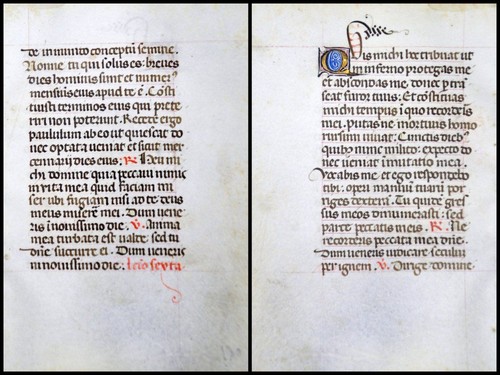 de inmundo conceptum semine.
Nonne tu qui solus es: breues
dies hominis sunt et numerus
mensium eius apud te ē. Cōsti
tuisti terminos eius qui prete
riri non poterunt. Recede ergo
paululum ab eo ut quiescat do
nec optata ueniat et sicut mer
cennarii dies eius: R Heu mi
chi domine quia peccaui nimis
in vita mea quid faciam mi
ser ubi fugiam nisi ad te deus
meus miserē mei. Dum vene
ris ī nouissimo die. V. Anima
mea turbata est valde: sed tu
dn̄e succurre ei. Dum veneris
in nouissimo die. lcio sexta
Quis michi hoc tribuat ut
in inferno protegas me
et abscondas me: donec ptrā
seat furor tuus: Et cōstituas
michi tempus ī quo recorderis
mei. putas ne mortuus homo
rursum uiuat: Cunctis dieb9
quibus nunc milito: expecto do
nec ueniat īmutatio mea.
Vocabis me: et ego respondebo
tibi: operi manuū tuarū por
riges dexterā. Tu quidē gres
sus meos dinumerasti: sed
parce peccatis meis. R. Ne
recorderis peccata mea dn̄e.
Dum ueneris iudicare seculum
per ignem. V. Dirige domine